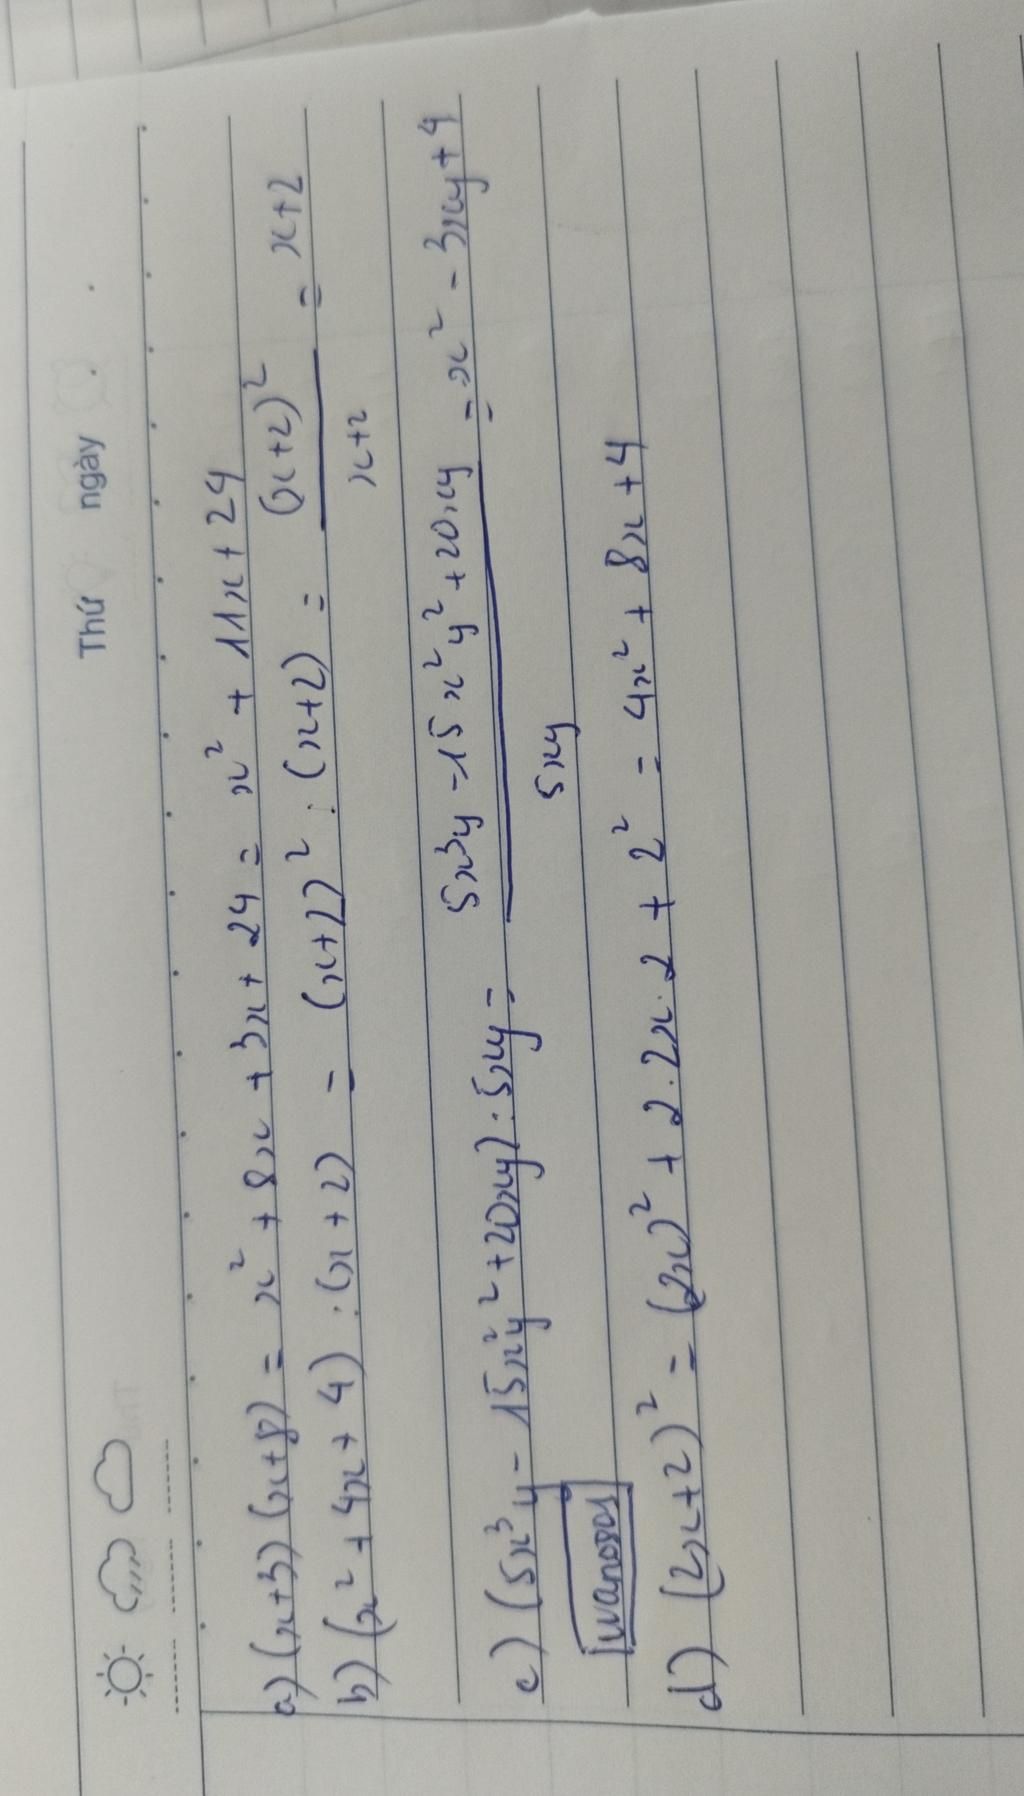 Thứ ngày
a) (x+3)(x+8) = x² + 8x + 3x + 24 = x² + 11x + 24
b) (x² + 4x + 4) : (x + 2) = (x+2)² : (x+2) = (x+2)² / x+2 = x+2
c) (5x³y - 15x²y² + 20xy) : 5xy = 5x³y - 15x²y² + 20xy / 5xy = x² - 3xy + 4
wanosos
d) (2x+2)² = (2x)² + 2.2x.2 + 2² = 4x² + 8x + 4